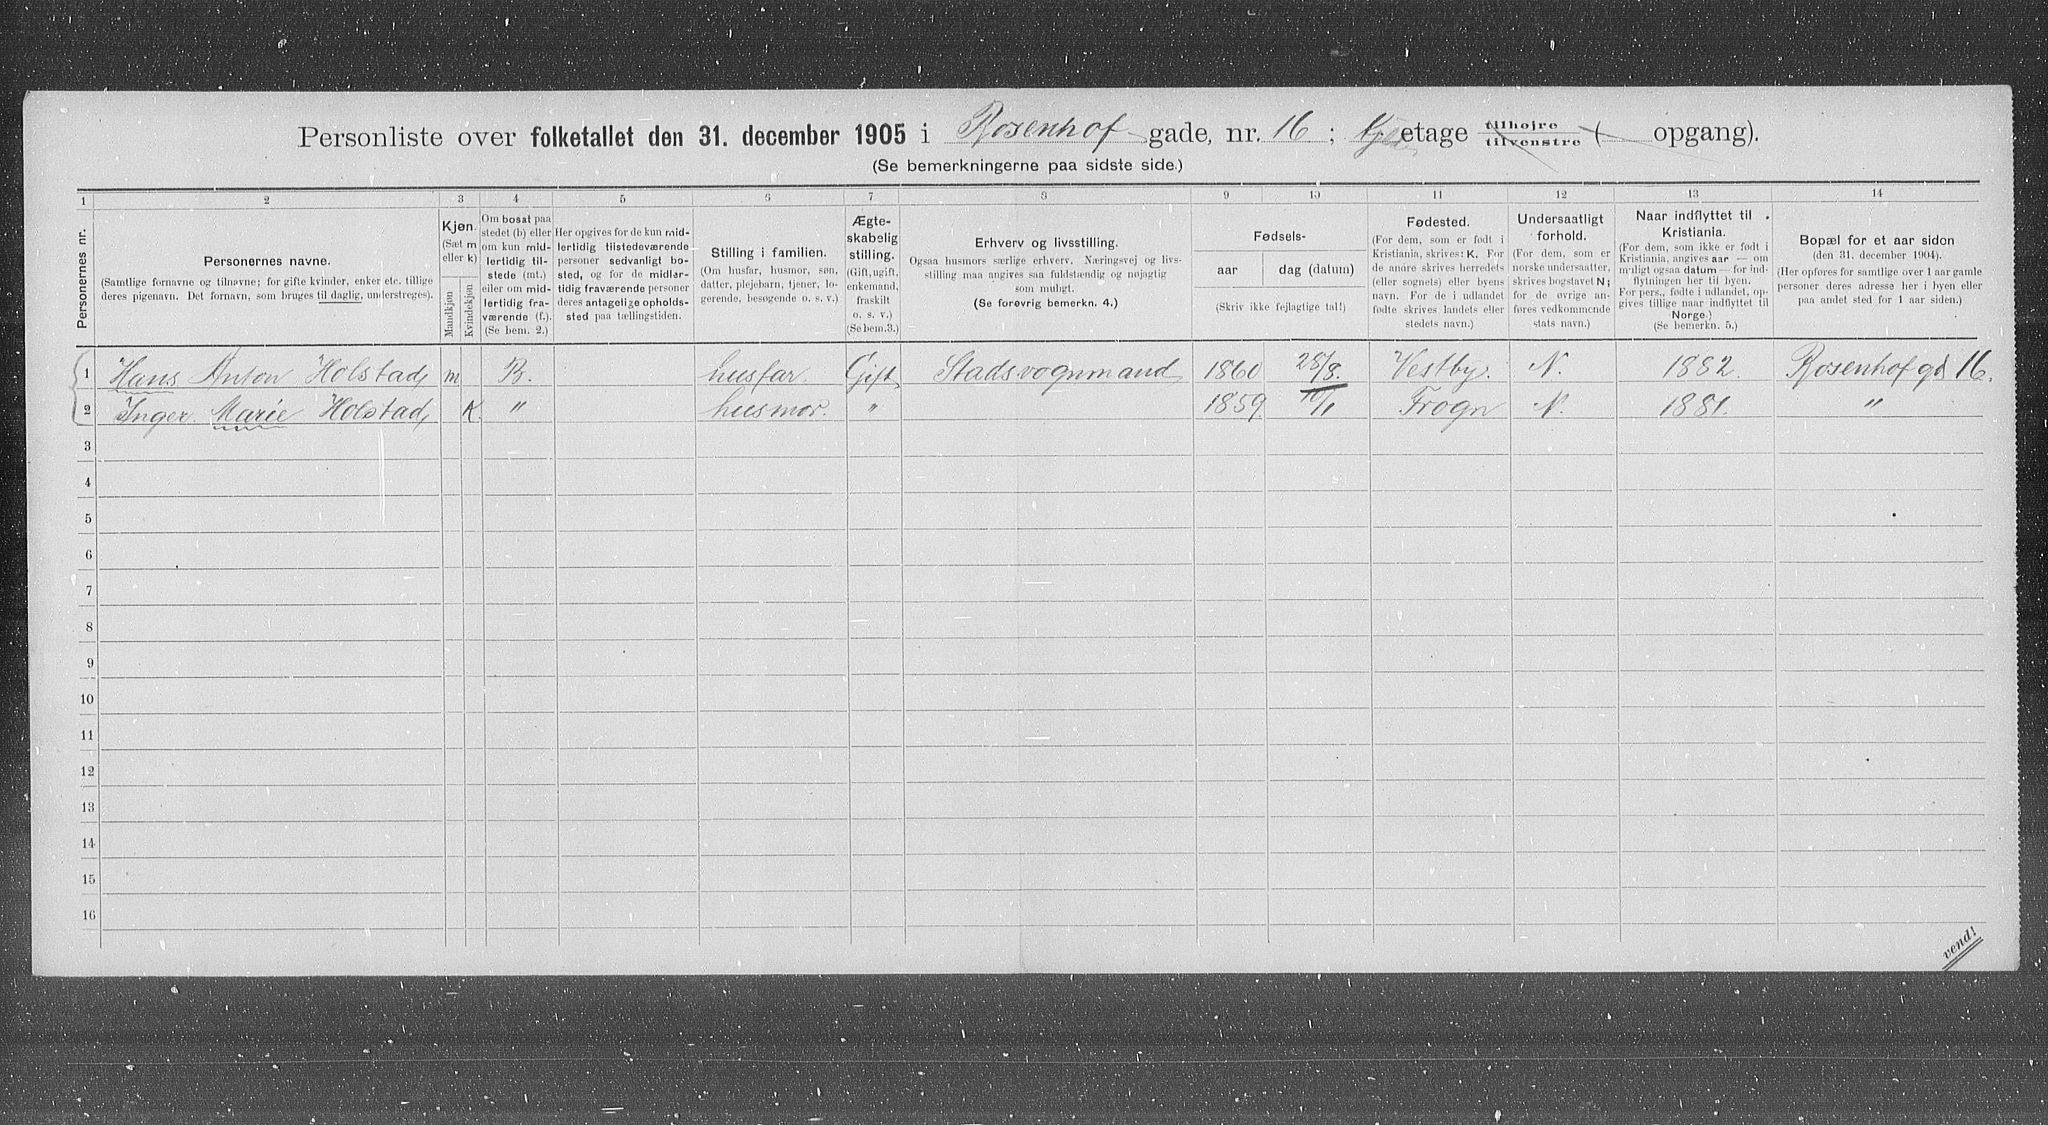 Personliste over folketallet den 31. december 1905 i Rosenhof gade, nr. 16 ; etage tilhøjre tilvenstre ( opgang).
(Se bemerkningerne paa sidste side.)
1 2 3 4 5 6 7 8 9 10 11 12 13 14
Personernes nr.
Personernes navne.
(Samtlige fornavne og tilnavne; for gifte kvinder, enker etc. tillige
deres pigenavn. Det fornavn, som bruges til daglig, understreges).
Kjøn.
(Sæt m
eller k)
Mandkjøn
Kvindekjøn
Om bosat paa
stedet (b) eller
om kun mid-
lertidig til-
stede (mt.)
eller om mid-
lertidig fra-
værende (f.).
(Se bem. 2.)
Her opgives for de kun mid-
lertidig tilstedeværende
personer sedvanligt bo-
sted, og for de midler-
tidig fraværende personer
deres antagelige opholds-
sted paa tællingstiden.
Stilling i familien.
(Om husfar, husmor, søn,
datter, plejebarn, tjener, lo-
gerende, besøgende o. s. v.)
Ægte-
skabelig
stilling.
(Gift, ugift,
enkemand,
fraskilt
o. s. v.)
(Se bem. 3.)
Erhverv og livsstilling.
Ogsaa husmors særlige erhverv. Næringsvej og livs-
stilling maa angives saa fuldstændig og nøjagtig
som muligt.
(Se forøvrig bemerkn. 4.)
Fødsels-
aar
dag (datum)
(Skriv ikke fejlagtige tal!)
Fødested.
(For dem, som er født i
Kristiania, skrives: K. For
de andre skrives herredets
(eller sognets) eller byens
navn. For de i udlandet
fødte skrives landets eller
stedets navn.)
Undersaatligt
forhold.
(For dem, som er
norske undersaatter,
skrives bogstavet N;
for de øvrige an-
føres vedkommende
stats navn.)
Naar indflyttet til
Kristiania.
(For dem, som ikke er født i
Kristiania, angives aar — om
muligt ogsaa datum — for ind-
flytningen her til byen.
For pers., fødte i udlandet, op-
gives tillige naar indflyttet til
Norge.)
(Se bemerkn. 5.)
Bopæl for et aar siden
(den 31. december 1904).
(Her opføres for samtlige over 1 aar gamle
personer deres adresse her i byen eller
paa andet sted for 1 aar siden.)
1 Hans Anton Holstad, m B. husfar. Gift Stadsvognmand 1860 28/8. Vestby. N. 1882. Rosenhof gd 16.
2 Inger Marie Holstad, K. " husmor. " 1859 10/1 Frogn N. 1881. "
3
4
5
6
7
8
9
10
11
12
13
14
15
16
vend!